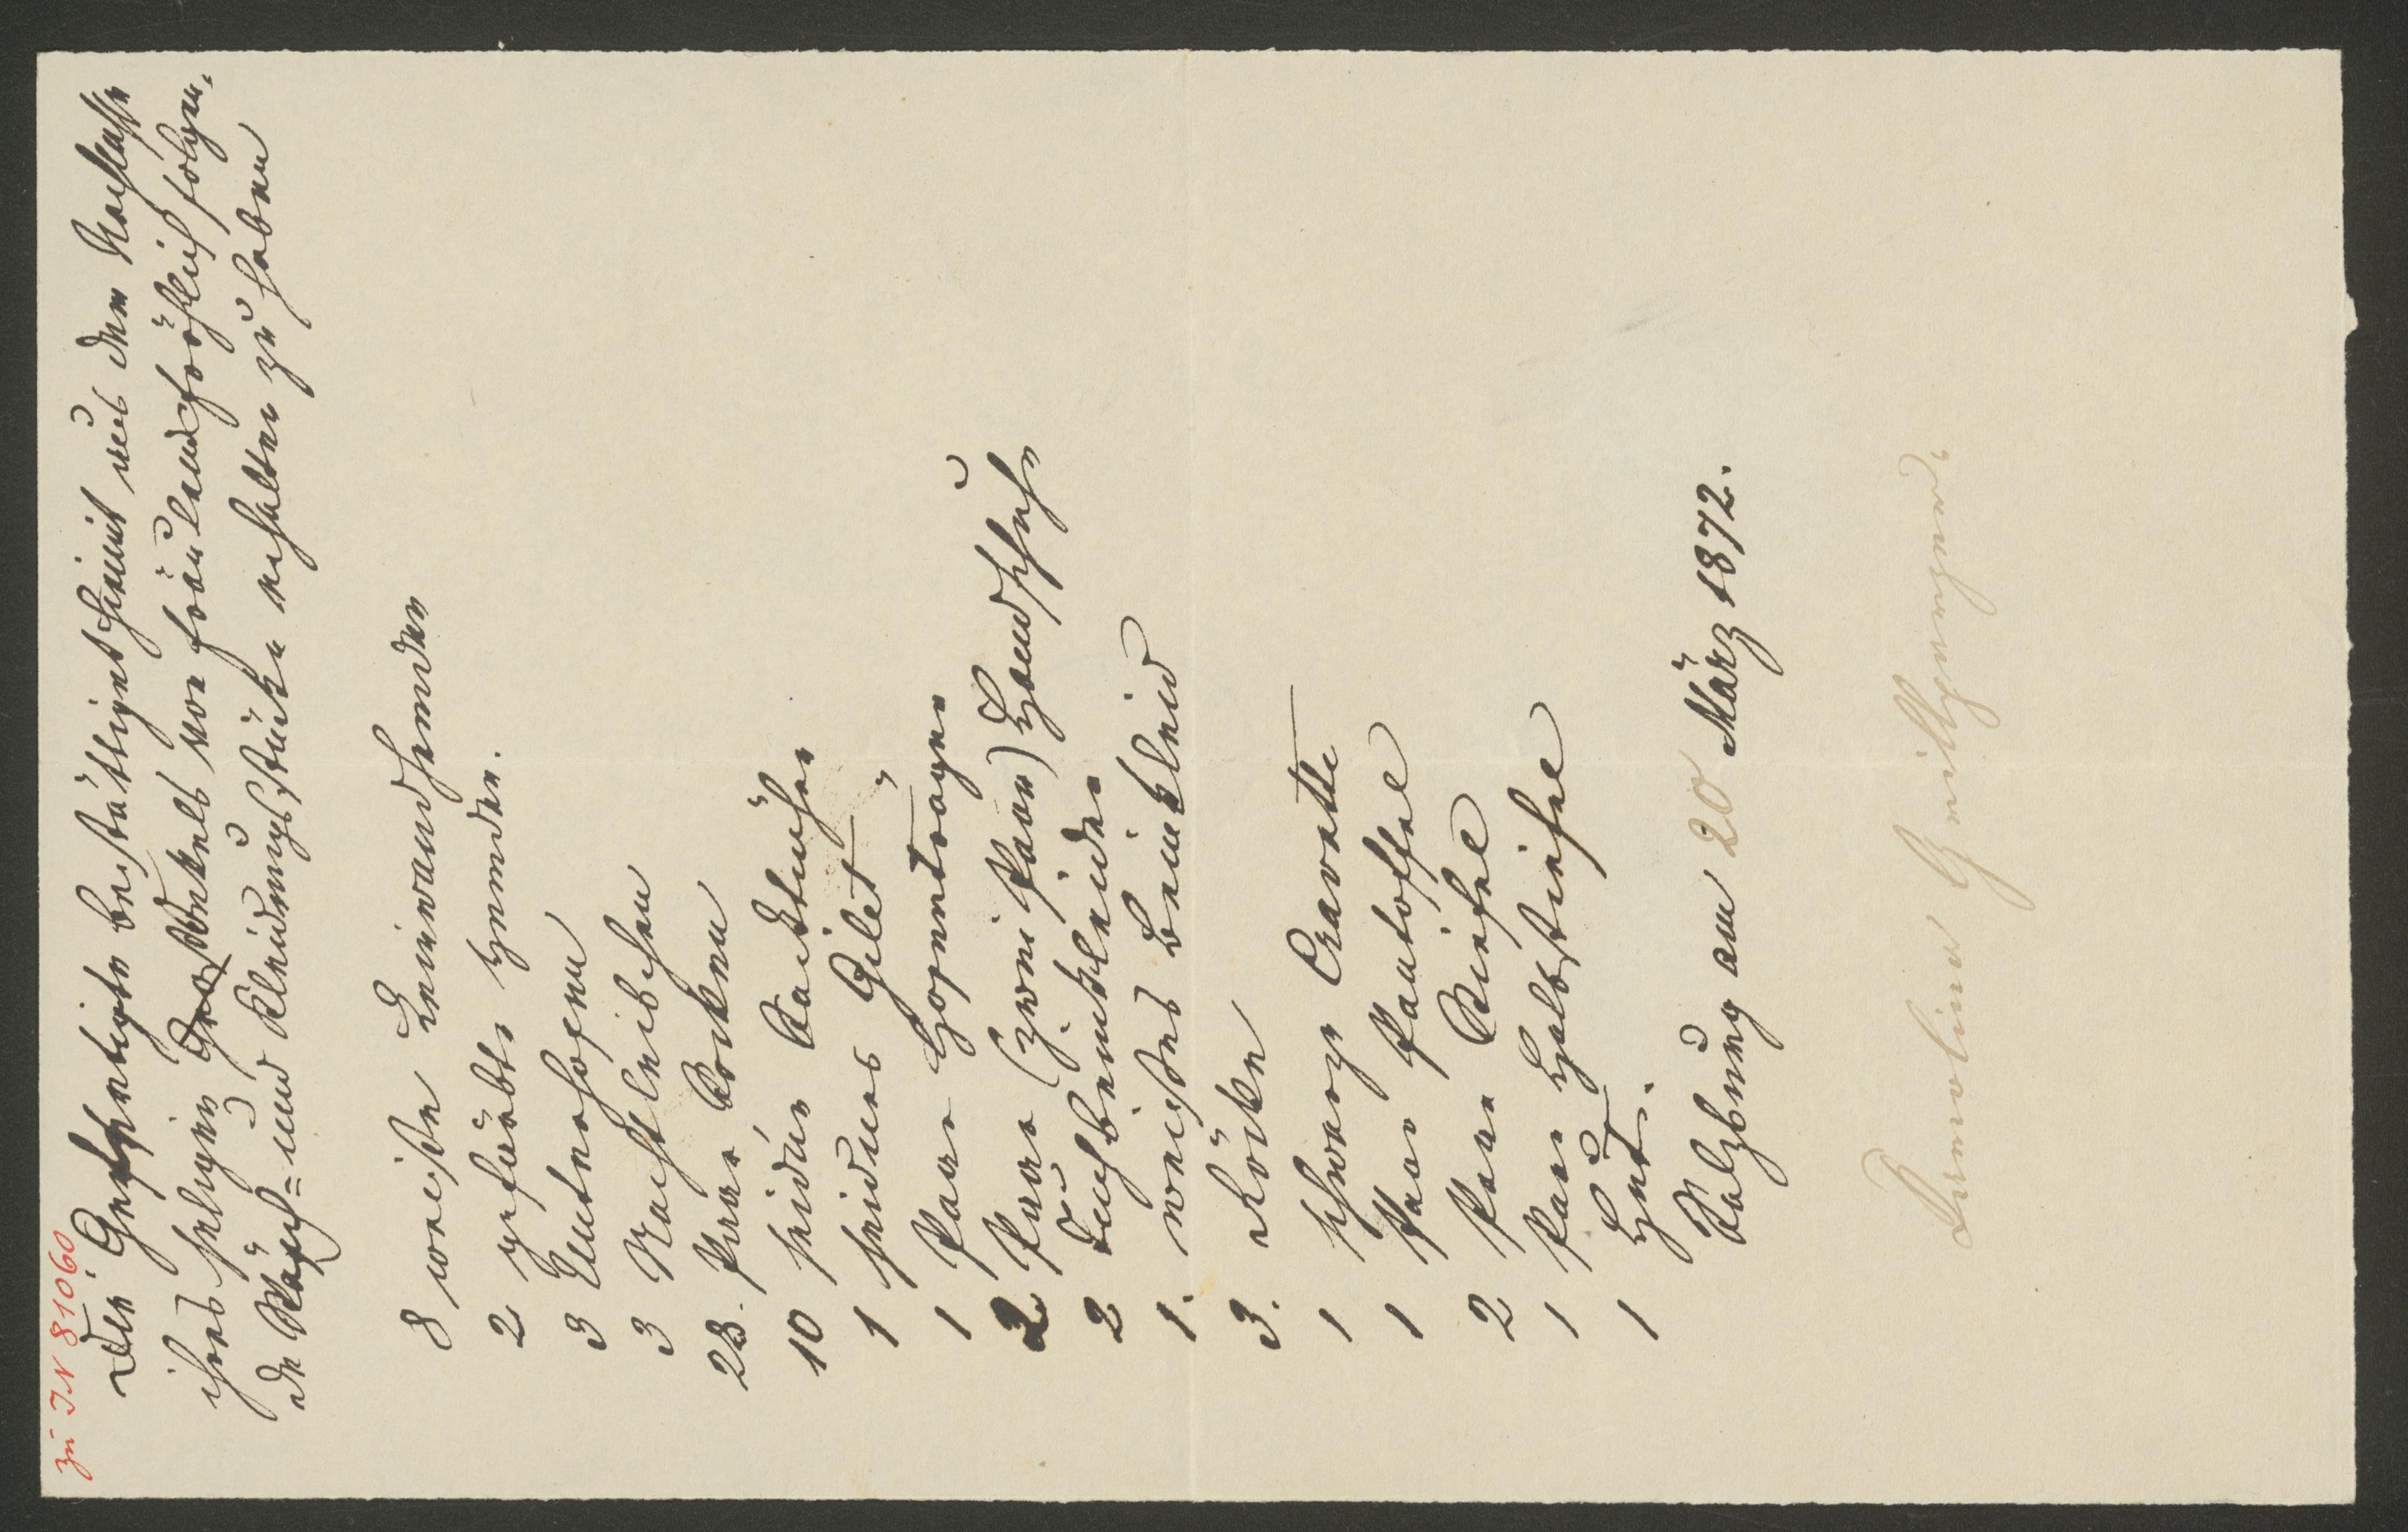 zu IN 81060
Der Gefertigte bestättiget hiemit aus dem Nachlasse
ihres seligen Onkels von Fräulein Fröhlich folgen,
de Wäsch= und Kleidungsstücke erhalten zu haben
8 weiße Leinwandhemden
2 gefärbte Hemden.
3 Unterhosen
3 Nachtleibchen
23. Paar Socken
10 seidene Sacktücher
1 seidenes Gilet
1 Paar Hosenträger
2 Paar (zwei Paar) Handschuhe
2 Tuchbeinkleider
1. weißes Beinkleid
3. Röcke
1 schwarze Cravatte
1 Paar Pantoffel
2 Paar Stiefel
1 Paar Halbstiefel
1 Hut.
Salzburg am 20 März 1872.
Grillparzer